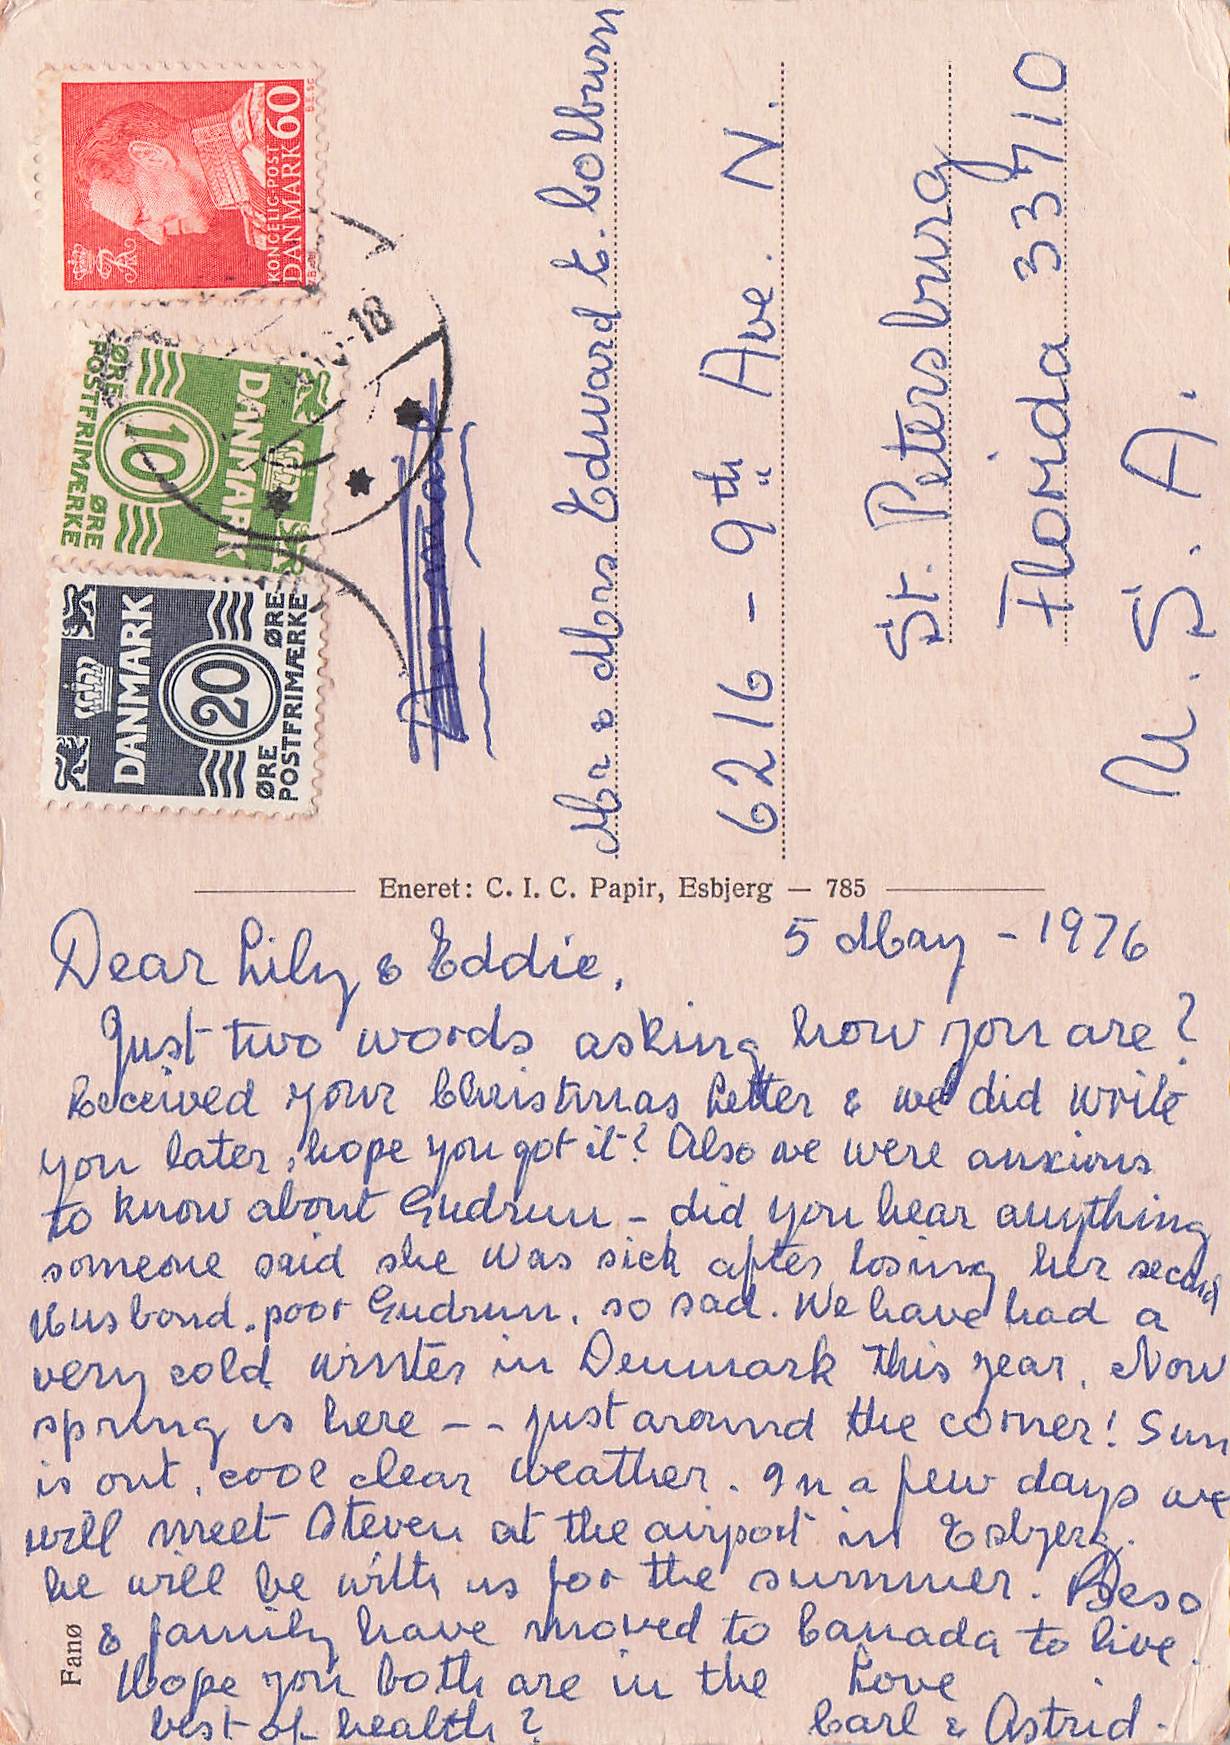 KONGELIG POST
DANMARK 60
10
DANMARK
ØRE ØRE
POSTFRIMÆRKE
20
DANMARK
ØRE ØRE
POSTFRIMÆRKE
-18
Mr & Mrs Edward C. Colburn
6216 - 9th Ave. N.
St. Petersburg
Florida 33710
U. S. A.
Eneret: C. I. C. Papir, Esbjerg — 785
5 May - 1976
Dear Lily & Eddie,
Just two words asking how you are?
Received your Christmas letter & we did write
you later, hope you got it? Also we were anxious
to know about Gudrun - did you hear anything
someone said she was sick after losing her second
Husband. poor Gudrun, so sad. We have had a
very cold winter in Denmark this year. Now
spring is here - - just around the corner! Sun
is out, cool clear weather. In a few days we
will meet Steven at the airport in Esbjerg.
he will be with us for the summer. Beso
& family have moved to Canada to live.
Hope you both are in the
best of health?
Love
Carl & Astrid.
Fanø